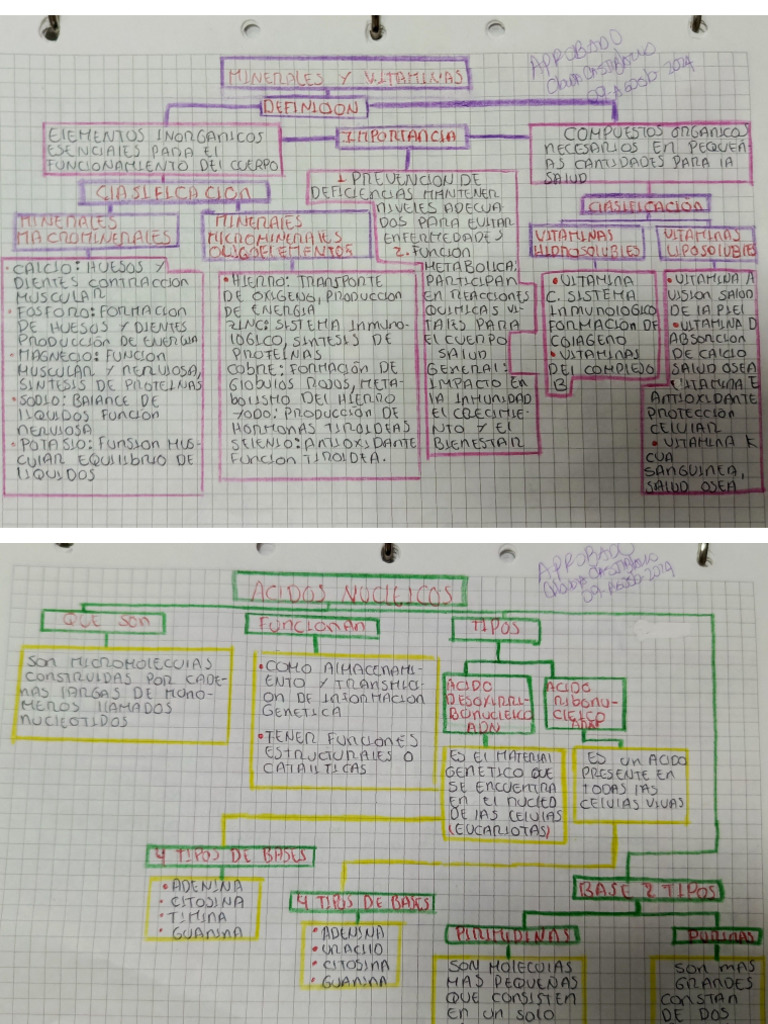 MINERALES Y VITAMINAS
APROBADO
09-Agosto-2024
DEFINICION
ELEMENTOS INORGANICOS
ESENCIALES PARA EL
FUNCIONAMIENTO DEL CUERPO
IMPORTANCIA
COMPUESTOS ORGANICOS
NECESARIOS EN PEQUEÑ
AS CANTIDADES PARA LA
SALUD
CLASIFICACION
MINERALES
MACROMINERALES
MINERALES
MICROMINERALES
OLIGOELEMENTOS
• CALCIO: HUESOS Y
DIENTES CONTRACCION
MUSCULAR
• FOSFORO: FORMACION
DE HUESOS Y DIENTES
PRODUCCION DE ENERGIA
• MAGNECIO: FUNCION
MUSCULAR Y NERVIOSA,
SINTESIS DE PROTEINAS
• SODIO: BALANCE DE
LIQUIDOS FUNCION
NERVIOSA
• POTASIO: FUNSION MUS-
CULAR EQUILIBRIO DE
LIQUIDOS
• HIERRO: TRANSPORTE
DE OXIGENO, PRODUCCION
DE ENERGIA
ZINC: SISTEMA INMUNO-
LOGICO, SINTESIS DE
PROTEINAS
COBRE: FORMACION DE
GLOBULOS ROJOS, META-
BOLISMO DEL HIERRO
YODO: PRODUCCION DE
HORMONAS TIROIDEAS
SELENIO: ANTIOXIDANTE
FUNCION TIROIDEA.
1. PREVENCION DE
DEFICIENCIAS MANTENER
NIVELES ADECUA
DOS PARA EVITAR
ENFERMEDADES
2. FUNCION
METABOLICA:
PARTICIPAN
EN REACCIONES
QUIMICAS VI-
TALES PARA
EL CUERPO
SALUD
GENERAL:
IMPACTO EN
LA INMUNIDAD
EL CRECIMIE-
NTO Y EL
BIENESTAR
CLASIFICACION
VITAMINAS
HIDROSOLUBLES
VITAMINAS
LIPOSOLUBLES
• VITAMINA
C. SISTEMA
INMUNOLOGICO
FORMACION DE
COLAGENO
• VITAMINAS
DEL COMPLEJO
B
• VITAMINA A
VISION SALUD
DE LA PIEL
• VITAMINA D
ABSORCION
DE CALCIO
SALUD OSEA
VITAMINA E
ANTIOXIDANTE
PROTECCION
CELULAR
• VITAMINA K
CUA
SANGUINEA,
SALUD OSEA
ACIDOS NUCLEICOS
APROBADO
09-Agosto-2024
QUE SON
FUNCIONAN
TIPOS
SON MICROMOLECULAS
CONSTRUIDAS POR CADE-
NAS LARGAS DE MONO-
MEROS LLAMADOS
NUCLEOTIDOS
• COMO ALMACENAMI-
ENTO Y TRANSMICI-
ON DE INFORMACION
GENETICA
• TENER FUNCIONES
ESTRUCTURALES O
CATALITICAS
ACIDO
DESOXIRRI-
BONUCLEICO
ADN
ACIDO
RIBONU-
CLEICO
ARN
ES EL MATERIAL
GENETICO QUE
SE ENCUENTRA
EN EL NUCLEO
DE LAS CELULAS
(EUCARIOTAS)
ES UN ACIDO
PRESENTE EN
TODAS LAS
CELULAS VIVAS
4 TIPOS DE BASES
• ADENINA
• CITOSINA
• TIMINA
• GUANINA
4 TIPOS DE BASES
• ADENINA
• URACILO
• CITOSINA
• GUANINA
BASE 2 TIPOS
PIRIMIDINAS
PURINAS
SON MOLECULAS
MAS PEQUEÑAS
QUE CONSISTEN
EN UN SOLO
SON MAS
GRANDES
CONSTAN
DE DOS